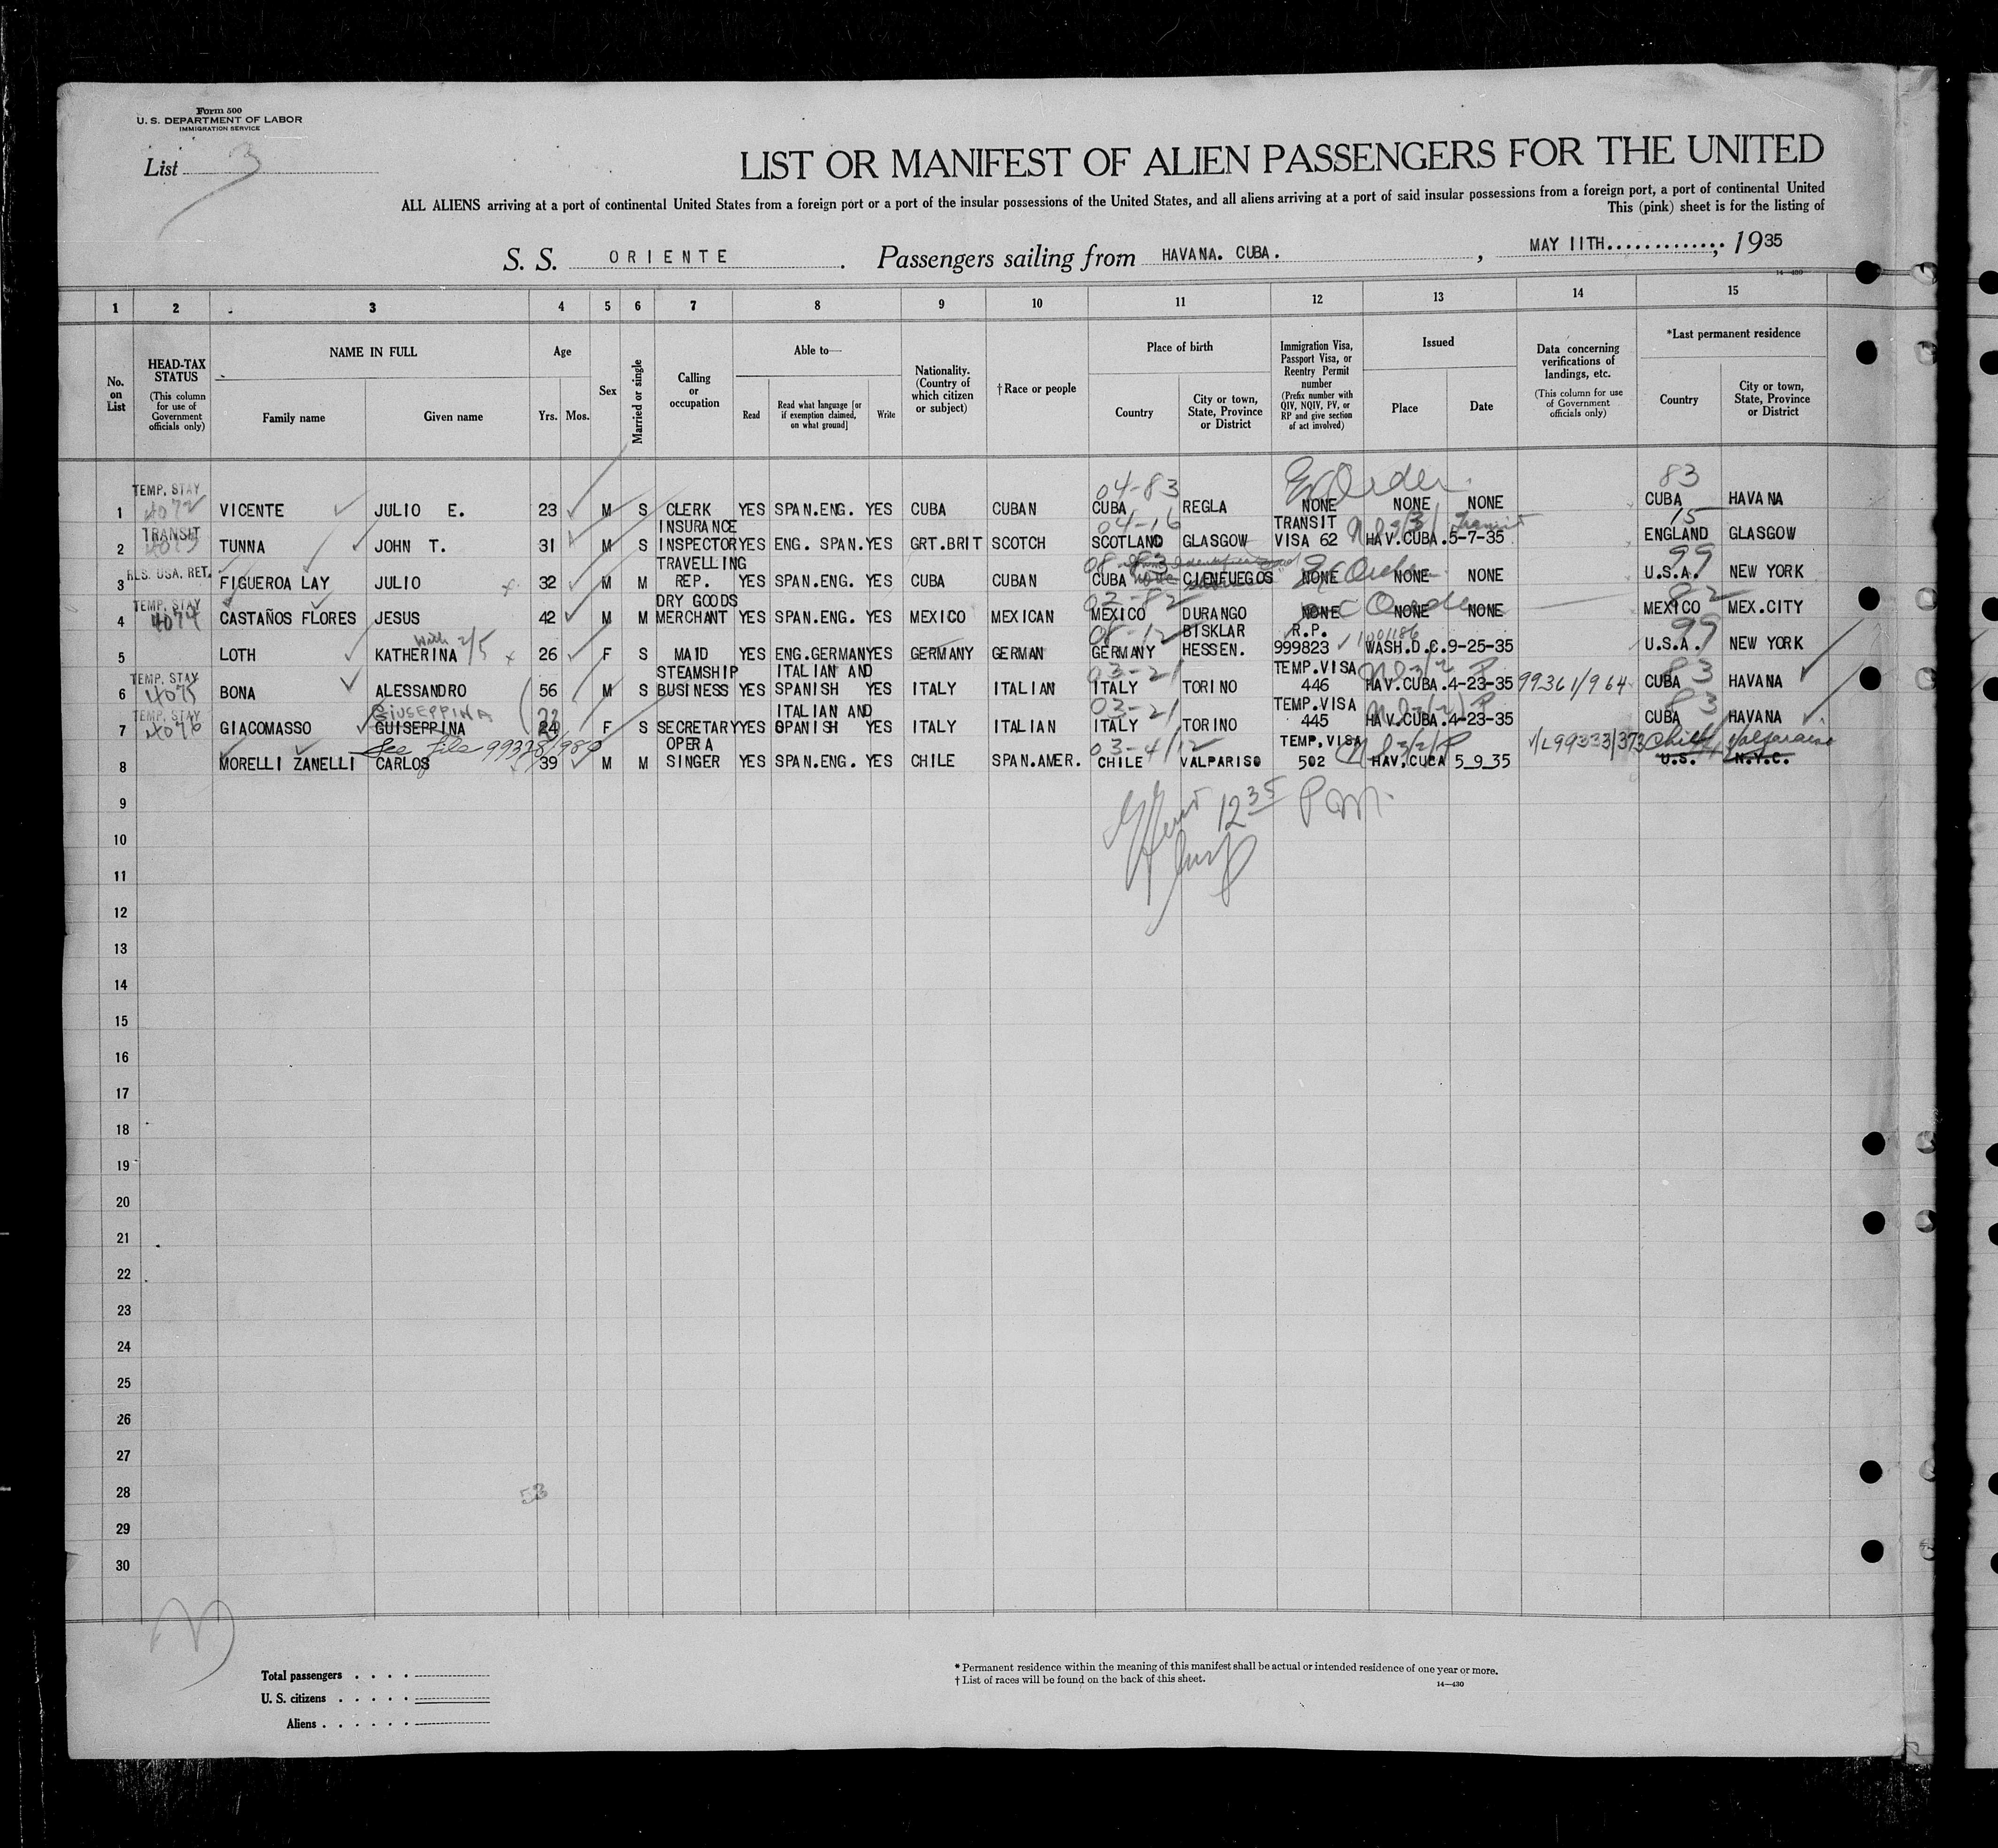 Form 500
U. S. DEPARTMENT OF LABOR
IMMIGRATION SERVICE
List 3
LIST OR MANIFEST OF ALIEN PASSENGERS FOR THE UNITED
ALL ALIENS arriving at a port of continental United States from a foreign port or a port of the insular possessions of the United States, and all aliens arriving at a port of said insular possessions from a foreign port, a port of continental United
This (pink) sheet is for the listing of
S. S. ORIENTE. Passengers sailing from HAVANA. CUBA. , MAY 11TH............., 1935
14—430
1 2 3 4 5 6 7 8 9 10 11 12 13 14 15
No. on List
HEAD-TAX STATUS (This column for use of Government officials only)
NAME IN FULL Family name Given name
Age Yrs. Mos.
Sex
Married or single
Calling or occupation
Able to— Read Read what language [or if exemption claimed, on what ground] Write
Nationality. (Country of which citizen or subject)
†Race or people
Place of birth Country City or town, State, Province or District
Immigration Visa, Passport Visa, or Reentry Permit number (Prefix number with QIV, NQIV, PV, or RP and give section of act involved)
Issued Place Date
Data concerning verifications of landings, etc. (This column for use of Government officials only)
*Last permanent residence Country City or town, State, Province or District
TEMP. STAY 04-83 Ex Order 83
1 4072 VICENTE JULIO E. 23 M S CLERK YES SPAN.ENG. YES CUBA CUBAN CUBA REGLA NONE NONE NONE CUBA HAVANA
TRANSIT INSURANCE 04-16 TRANSIT Transit 15
2 4073 TUNNA JOHN T. 31 M S INSPECTOR YES ENG. SPAN. YES GRT.BRIT SCOTCH SCOTLAND GLASGOW VISA 62 HAV.CUBA. 5-7-35 ENGLAND GLASGOW
RLS. USA. RET. TRAVELLING 08-83 99
3 FIGUEROA LAY JULIO 32 M M REP. YES SPAN.ENG. YES CUBA CUBAN CUBA CIENFUEGOS NONE Ex Order NONE NONE U.S.A. NEW YORK
TEMP. STAY DRY GOODS 02-82 82
4 4074 CASTAÑOS FLORES JESUS 42 M M MERCHANT YES SPAN.ENG. YES MEXICO MEXICAN MEXICO DURANGO NONE Order NONE NONE MEXICO MEX.CITY
with 2/5 08-12 BISKLAR R.P. 1001186 99
5 LOTH KATHERINA 26 F S MAID YES ENG.GERMAN YES GERMANY GERMAN GERMANY HESSEN. 999823 WASH.D.C. 9-25-35 U.S.A. NEW YORK
TEMP. STAY STEAMSHIP ITALIAN AND 03-21 TEMP.VISA 83
6 4075 BONA ALESSANDRO 56 M S BUSINESS YES SPANISH YES ITALY ITALIAN ITALY TORINO 446 HAV.CUBA. 4-23-35 99361/964 CUBA HAVANA
TEMP. STAY GIUSEPPINA ITALIAN AND 03-21 TEMP.VISA 83
7 4076 GIACOMASSO GUISEPPINA 24 F S SECRETARY YES SPANISH YES ITALY ITALIAN ITALY TORINO 445 HAV.CUBA. 4-23-35 CUBA HAVANA
See file 99378/980 OPERA 03-41/12 TEMP.VISA V/L 99333/373 Chile Valparaiso
8 MORELLI ZANELLI CARLOS 39 M M SINGER YES SPAN.ENG. YES CHILE SPAN.AMER. CHILE VALPARISO 502 HAV.CUBA 5_9_35 U.S. N.Y.C.
9
12 35 P.M.
10
11
12
13
14
15
16
17
18
19
20
21
22
23
24
25
26
27
28
53
29
30
Total passengers . . . .
U. S. citizens . . . . .
Aliens . . . . . .
* Permanent residence within the meaning of this manifest shall be actual or intended residence of one year or more.
† List of races will be found on the back of this sheet.
14—430